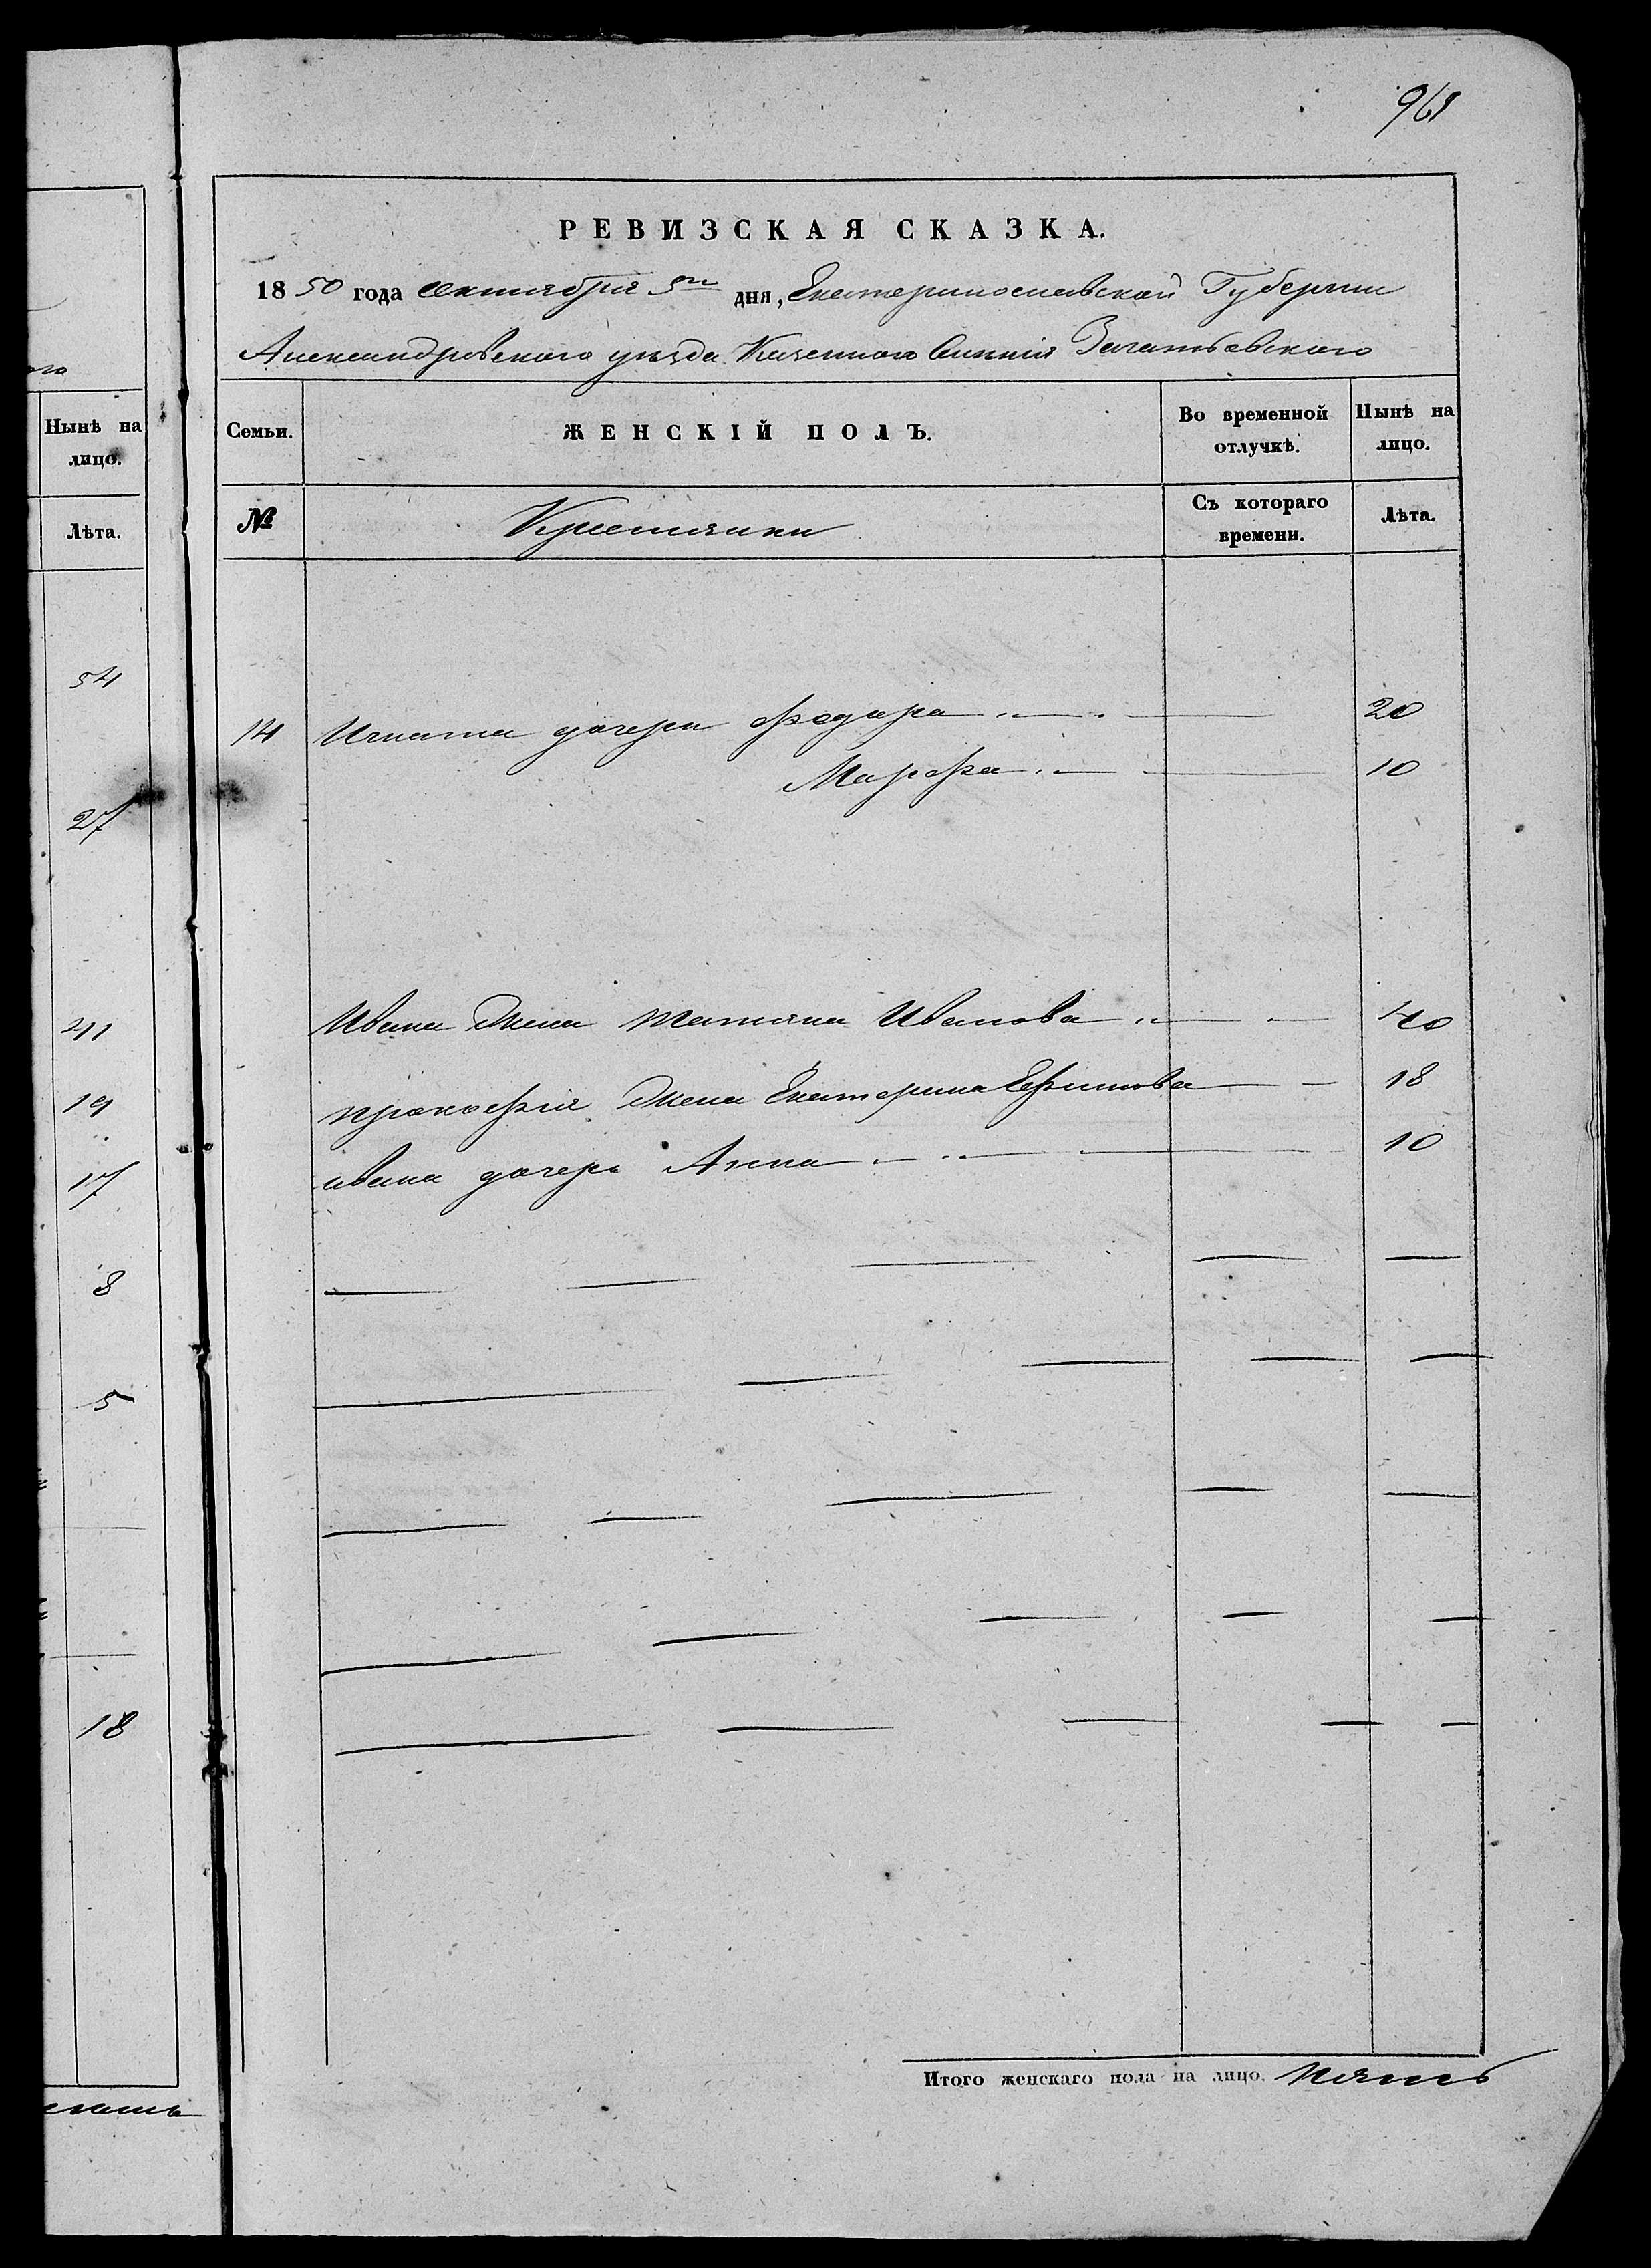 961
РЕВИЗСКАЯ СКАЗКА.
1850 года октября 5го дня, Екатеринославской Губернии
Александровского уезда Казенного Селения
Нынѣ на лицо.
Лѣта.
54
27
41
19
17
8
5
18
Семьи.
ЖЕНСКІЙ ПОЛЪ.
Во временной отлучкѣ.
Нынѣ на лицо.
№
Крестьянки
Съ котораго времени.
Лѣта.
14 Игната дочери Федора 20
Марфа 10
Ивана Жена Татияна Иванова 40
прокофія Жена Екатерина Ефимова 18
ивана дочерь Анна 10
Итого женскаго пола на лицо. пять